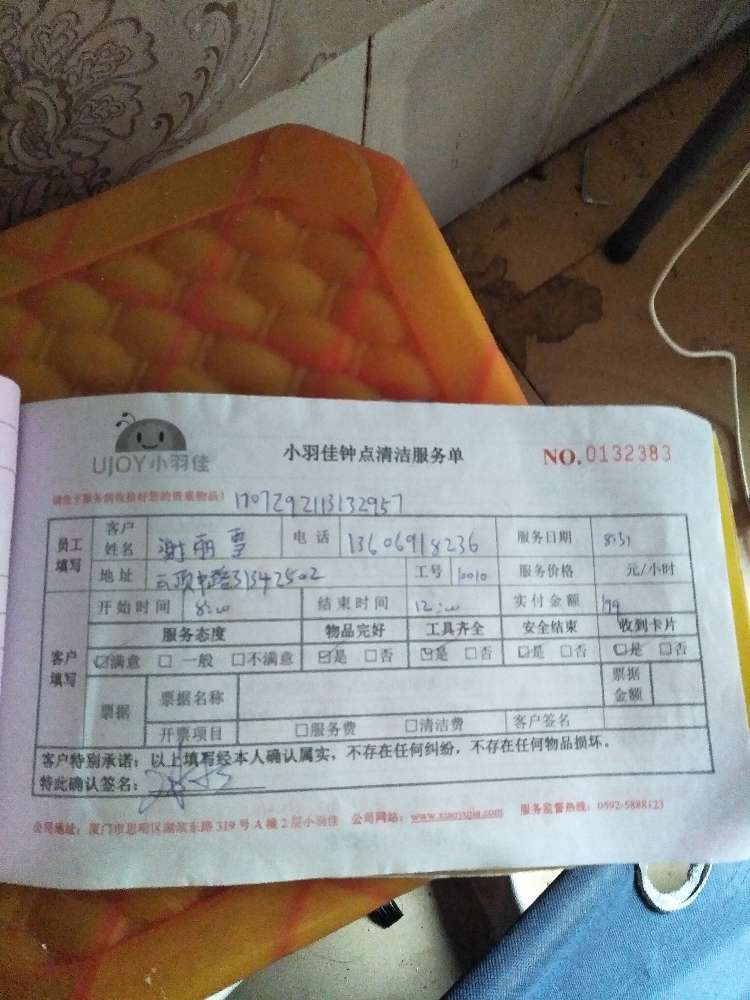 UJOY小羽佳
小羽佳钟点清洁服务单
NO.0132383
请在于服务前收拾好您的贵重物品!
员工填写 客户姓名 谢丽雪 电话 13606918236 服务日期 8.31
地址 工号 10010 服务价格 元/小时
客户填写 开始时间 8:00 结束时间 12:00 实付金额 199
服务态度 物品完好 工具齐全 安全结束 收到卡片
☑满意 □一般 □不满意 ☑是 □否 ☑是 □否 ☑是 □否 ☑是 □否
票据 票据名称 票据金额
开票项目 □服务费 □清洁费 客户签名
客户特别承诺:以上填写经本人确认属实,不存在任何纠纷,不存在任何物品损坏。
特此确认签名:
公司地址:厦门市思明区湖滨东路319号A幢2层小羽佳 公司网站:www.xiaoyujia.com 服务监督热线:0592-5888123